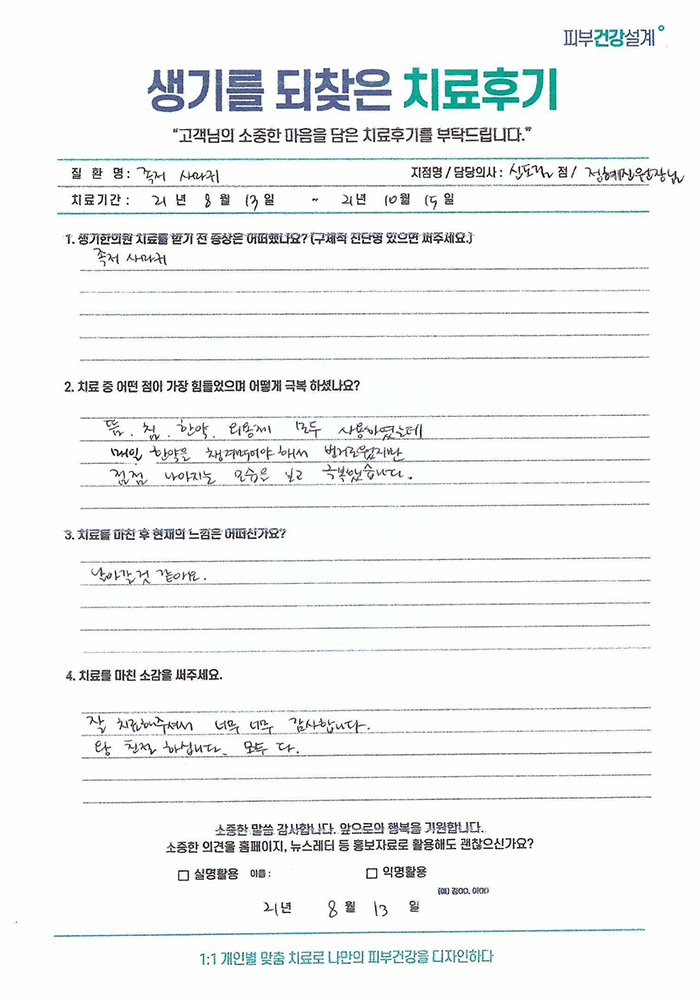 피부건강설계
생기를 되찾은 치료후기
"고객님의 소중한 마음을 담은 치료후기를 부탁드립니다."
질 환 명 : 족저 사마귀 지점명 / 담당의사 : 신도림 점 / 정혜진원장님
치료기간 : 21 년 8 월 13 일 ~ 21 년 10 월 15 일
1. 생기한의원 치료를 받기 전 증상은 어떠했나요? (구체적 진단명 있으면 써주세요.)
족저 사마귀
2. 치료 중 어떤 점이 가장 힘들었으며 어떻게 극복 하셨나요?
뜸. 침. 한약. 외용제 모두 사용하였는데
매일 한약을 챙겨먹어야 해서 번거로웠지만
점점 나아지는 모습을 보고 극복했습니다.
3. 치료를 마친 후 현재의 느낌은 어떠신가요?
날아갈것 같아요.
4. 치료를 마친 소감을 써주세요.
잘 치료해주셔서 너무 너무 감사합니다.
왕 친절 하십니다. 모두 다.
소중한 말씀 감사합니다. 앞으로의 행복을 기원합니다.
소중한 의견을 홈페이지, 뉴스레터 등 홍보자료로 활용해도 괜찮으신가요?
실명활용 이름 : 익명활용
(예) 김OO, 이OO
21 년 8 월 13 일
1:1 개인별 맞춤 치료로 나만의 피부건강을 디자인하다